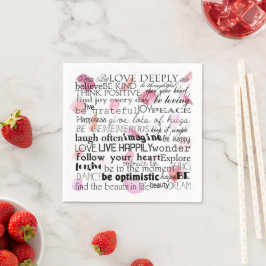 LOVE DEEPLY
believe BE KIND be thoughtful
THINK POSITIVE open your heart
find joy every day be loving
live
be grateful JOY PEACE
Happiness give lots of hugs
BE GENEROUS
laugh often imagine be happy
LOVE LIVE HAPPILY wonder
follow your heart Explore
laugh be in the moment
DANCE be optimistic BE
find the beauty in life beauty DREAM